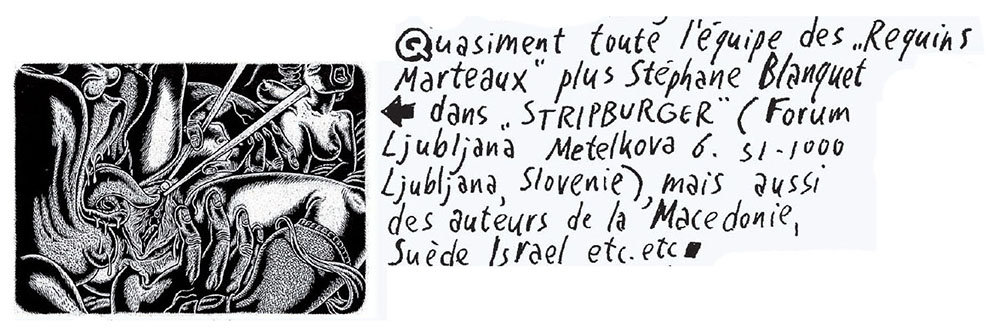 Quasiment touté l'équipe des „Requins
Marteaux" plus Stéphane Blanquet
dans „STRIPBURGER" (Forum
Ljubljana Metelkova 6. SI-1000
Ljubljana, Slovenie), mais aussi
des auteurs de la Macedonie,
Suède Israel etc. etc